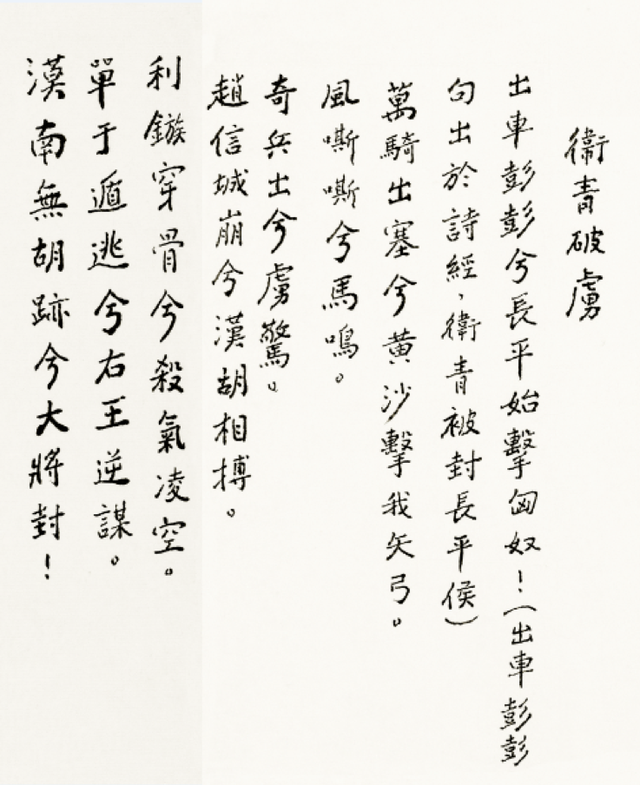 衛青破虜
出車彭彭兮長平始擊匈奴！（出車彭彭
句出於詩經，衛青被封長平侯）
萬騎出塞兮黃沙擊我矢弓。
風嘶嘶兮馬鳴。
奇兵出兮虜驚。
趙信城崩兮漢胡相搏。
利鏃穿骨兮殺氣凌空。
單于遁逃兮右王逆謀。
漠南無胡跡兮大將封！